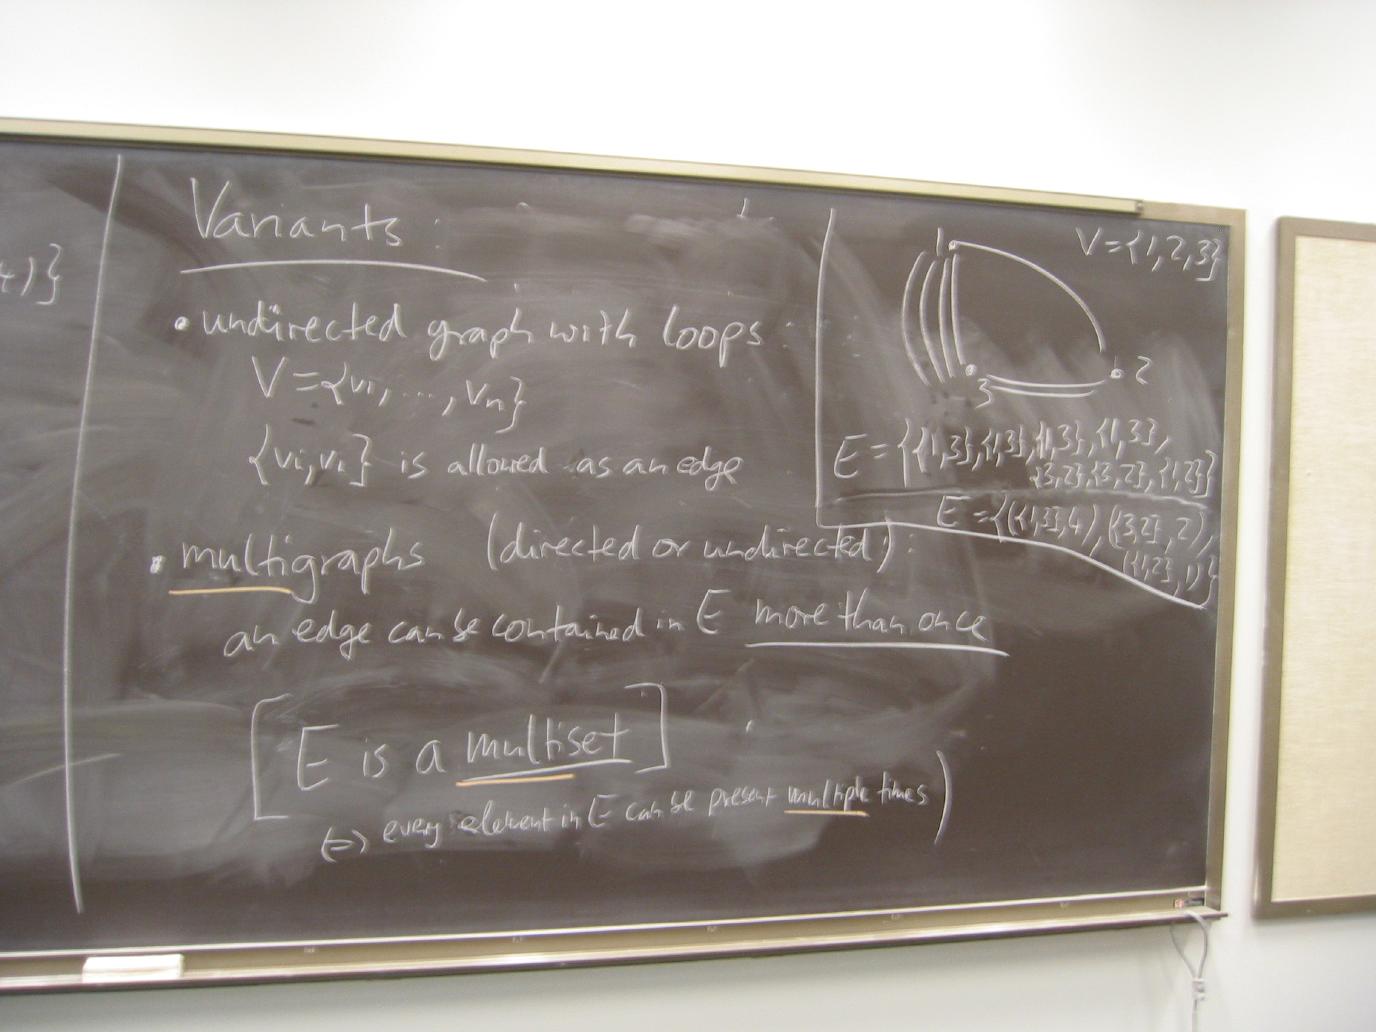 4)}
Variants:
• undirected graph with loops
V={vi,...,vn}
{vi,vi} is allowed as an edge
• multigraphs (directed or undirected):
an edge can be contained in E more than once
[E is a multiset]
(=) every element in E can be present multiple times)
V={1,2,3}
1
2
3
E={{1,3},{1,3},{1,3},{1,3},
{3,2},{3,2},{1,2}}
E={({1,3},4),({3,2},2),
({1,2},1)}